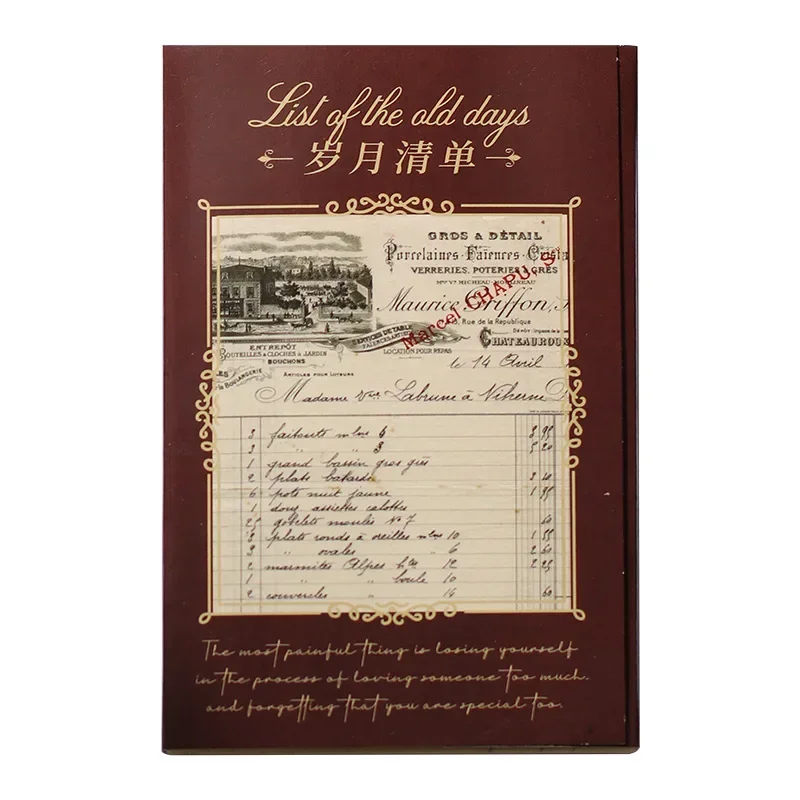 List of the old days
岁月清单
GROS & DÉTAIL
Porcelaines - Faïences - Crista
VERRERIES, POTERIES & GRÈS
Mon Vve MICHEAU-MOREREAU
Maurice Griffon, S
Marcel CHAPU, S
Rue de la République
CHATEAUROUX
ENTREPÔT
BOUTEILLES & CLOCHES À JARDIN
BOUCHONS
SERVICES DE TABLE
LOCATION POUR REPAS
le 14 Avril
DE BOULANGERIE
ARTICLES POUR LOTEURS
Madame Vve Labrune à Niherne D
3 faitouts m/ns 6 3 95
3 " " 3 5 20
1 grand bassin gros grès
2 plats batards 3 40
6 pots nuit jaune 1 95
1 douz assiettes calottes
25 gobelets moulés No 7 60
3 plats ronds à oreilles m/ns 10 1 55
3 " ovales " 6 2 60
2 marmites Alpes htes 12 2 25
1 " " boule 10
2 couvercles " 16 60
The most painful thing is losing yourself
in the process of loving someone too much.
and forgetting that you are special too.